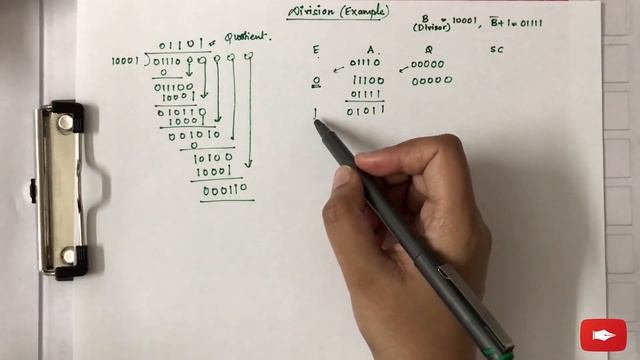 Division (Example)
B = 10001, B̅+1 = 01111
(Divisor)
01101 ← Quotient.
10001 ) 01110 0 0 0 0 0
0
011100
10001
010110
10001
001010
0
10100
10001
000110
E A Q SC
01110 00000
0 11100 00000
01111
1 01011